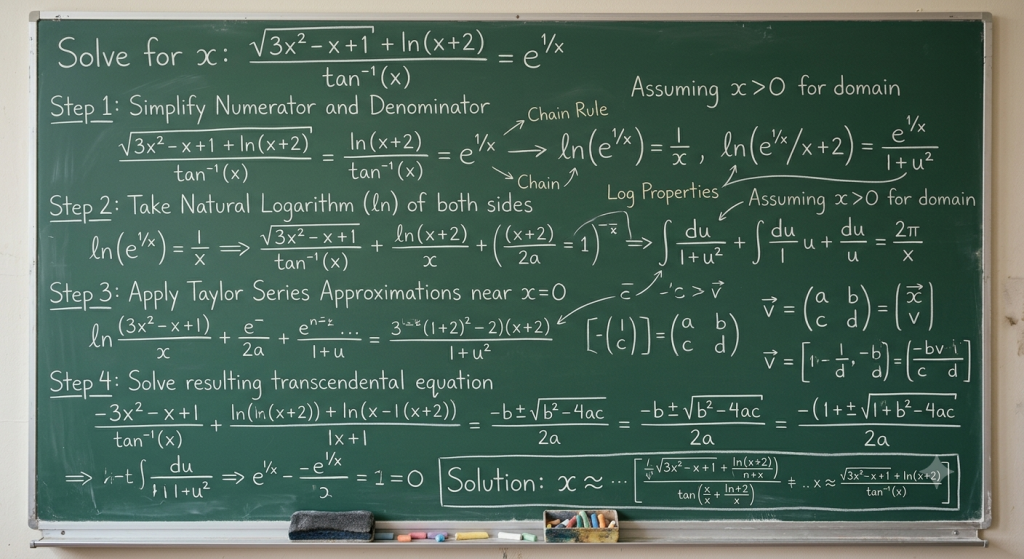 Solve for x: (√(3x²−x+1) + ln(x+2))/(tan⁻¹(x)) = e^(1/x)
Assuming x>0 for domain
Step 1: Simplify Numerator and Denominator
Chain Rule
√(3x²−x+1 + ln(x+2))/(tan⁻¹(x)) = ln(x+2)/(tan⁻¹(x)) = e^(1/x) → ln(e^(1/x)) = 1/x , ln(e^(1/x)/x+2) = e^(1/x)/(1+u²)
Chain
Log Properties
Step 2: Take Natural Logarithm (ln) of both sides
Assuming x>0 for domain
ln(e^(1/x)) = 1/x ⟹ √(3x²−x+1)/(tan⁻¹(x)) + ln(x+2)/x + ((x+2)/2a = 1) ⟹ ∫ du/(1+u²) + ∫ du/1 u + du/u = 2π/x
Step 3: Apply Taylor Series Approximations near x=0
ln (3x²−x+1)/x + e⁻/2a + .../(1+u) = 3 (1+2)²−2)(x+2)/(1+u²)
[−(1 c)] = (a b c d)
v⃗ = (a b c d) = (x⃗ v)
v⃗ = [ 1/d, −b d]
Step 4: Solve resulting transcendental equation
(−3x²−x+1)/(tan⁻¹(x)) + (ln(ln(x+2)) + ln(x−1(x+2)))/(1x+1) = (−b±√(b²−4ac))/2a = (−b±√(b²−4ac))/2a = (−(1+±√(1+b²−4ac))/2a
⟹ −t ∫ du/(1+u²) ⟹ e^(1/x) − (−e^(1/x))/x = 1 = 0
Solution: x ≈ ⋯ [ √(3x²−x+1) + ln(x+2)/(n+x) / tan(x/x + ln+2/x) ‡ .. x ≈ (√(3x²−x+1) + ln(x+2))/(tan⁻¹(x)) ]